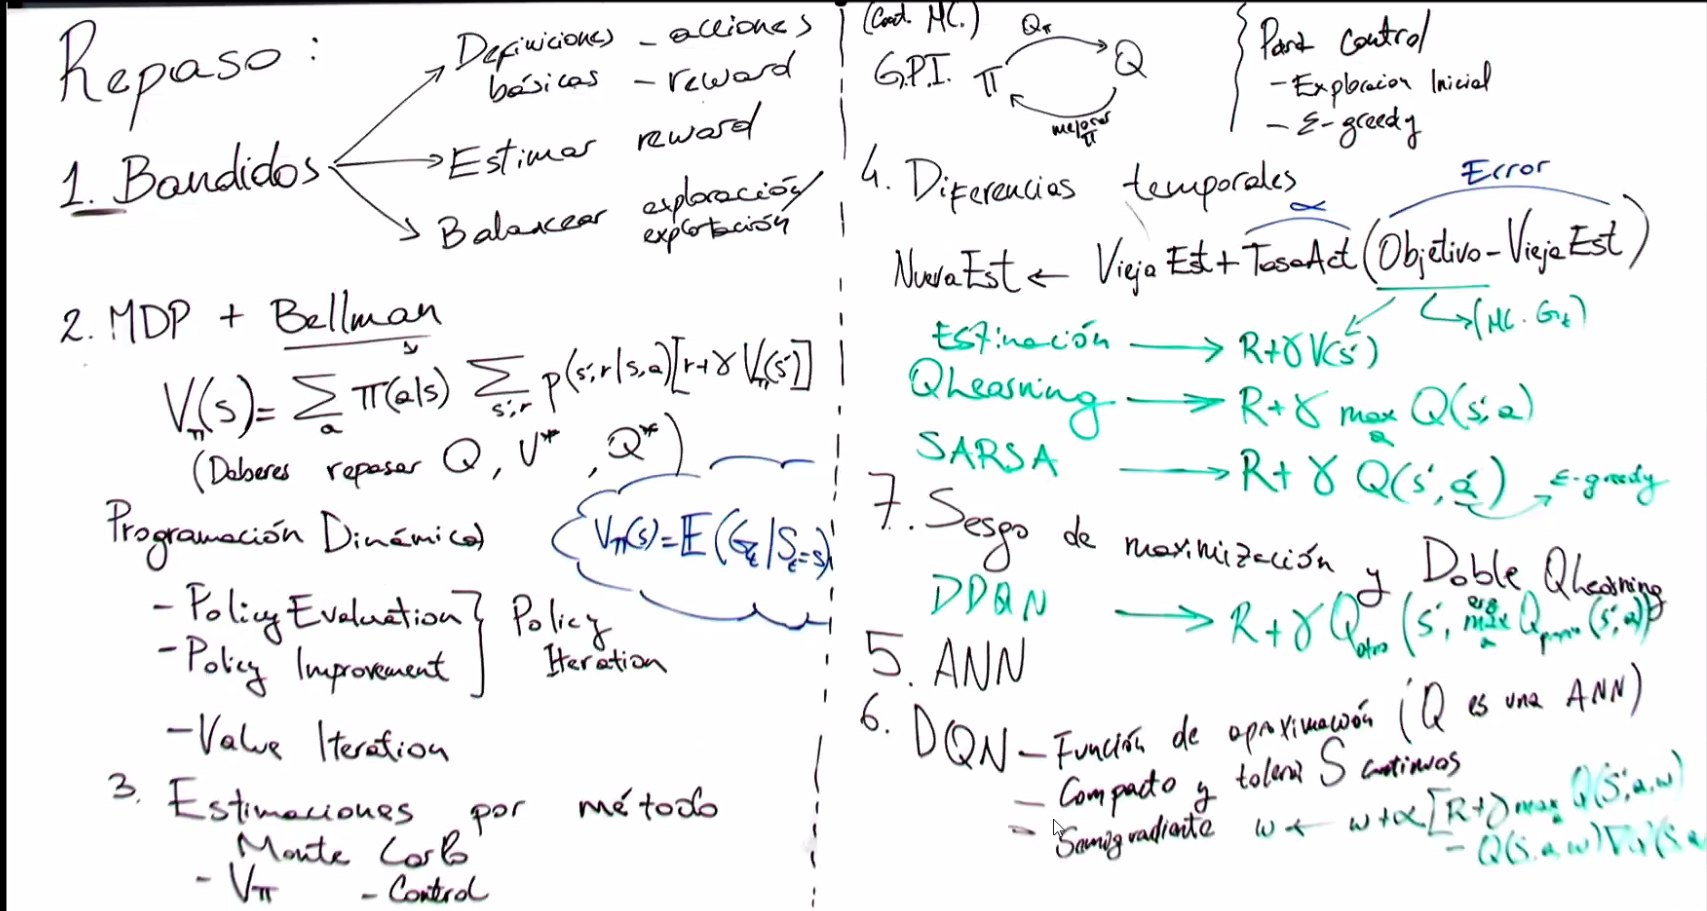 Repaso:
1. Bandidos
Definiciones básicas
- acciones
- reward
Estimar reward
Balancear exploración/explotación
2. MDP + Bellman
Vπ(s) = Σ_a π(a|s) Σ_s',r p(s',r|s,a)[r+γ Vπ(s')]
(Deberes repasar Q, V*, Q*)
Programación Dinámica
Vπ(s)=E(Gt|St=s)
- Policy Evaluation
- Policy Improvement
Policy
Iteration
- Value Iteration
3. Estimaciones por método
Monte Carlo
- Vπ - Control
(Cont. MC.)
G.P.I.
π
Qπ
Q
mejorar
π
Para control
- Exploración Inicial
- ε-greedy
4. Diferencias temporales
Error
α
NuevaEst ← Vieja Est + TasaAct (Objetivo - Vieja Est)
(MC. Gt)
Estimación → R+γV(s')
QLearning → R+γ max_a Q(s',a)
SARSA → R+γ Q(s',a') → ε-greedy
7. Sesgo de maximización y Doble QLearning
DDQN → R+γ Q (s', arg max_a Q (s',a))
5. ANN
6. DQN - Función de aproximación (Q es una ANN)
- Compacto y tolera S continuos
- Semigradiente w ← w+α[R+γ max_a Q(s',a,w)
- Q(s,a,w)